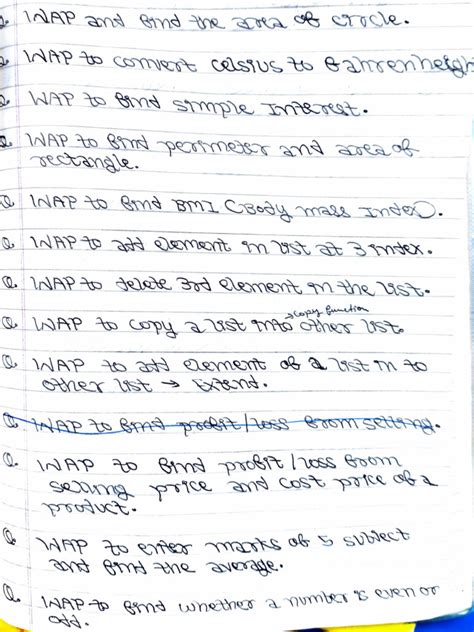 Q. WAP and find the area of circle.
Q. WAP to convert celsius to Fahrenheigh
Q. WAP to find simple Interest.
Q. WAP to find perimeter and area of
rectangle.
Q. WAP to find BMI (Body mass Index).
Q. WAP to add element in list at 3 index.
Q. WAP to delete 3rd element in the list.
→ copy function
Q. WAP to copy a list into other list.
Q. WAP to add element of a list in to
other list → Extend.
Q. WAP to find profit/loss from selling.
Q. WAP to find profit/loss from
selling price and cost price of a
product.
Q. WAP to enter marks of 5 subject
and find the average.
Q. WAP to find whether a number is even or
odd.